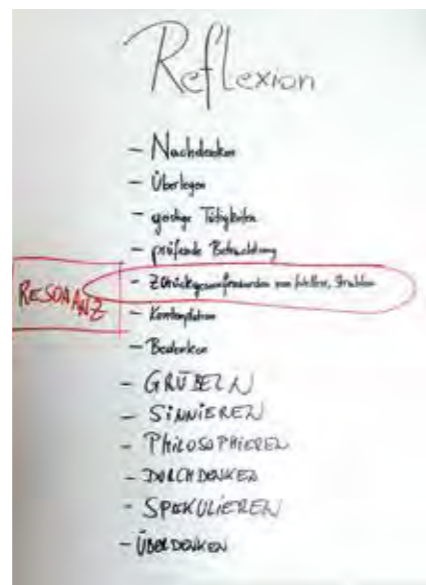 Reflexion
- Nachdenken
- Überlegen
- geistige Tätigkeiten
- prüfende Betrachtung
RESONANZ
- Zurückgeworfenwerden von Wellen, Strahlen
- Kontemplation
- Bedenken
- GRÜBELN
- SINNIEREN
- PHILOSOPHIEREN
- DURCHDENKEN
- SPEKULIEREN
- ÜBERDENKEN